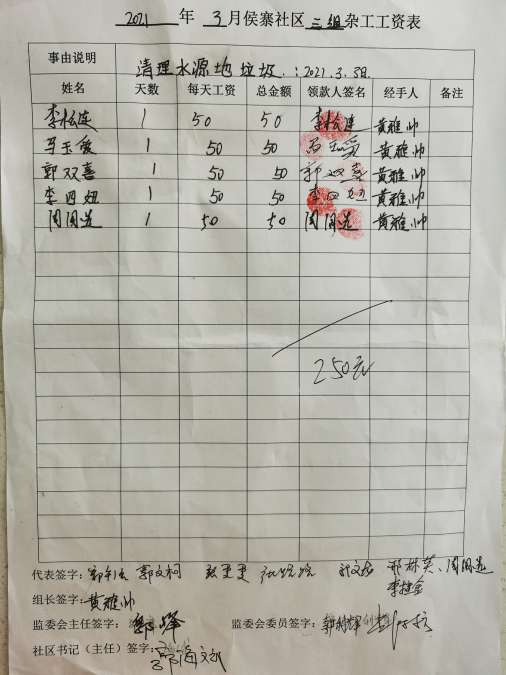 2021 年 3月侯寨社区 三组 杂工工资表
事由说明 清理水源地垃圾.：2021.3.3日.
姓名 天数 每天工资 总金额 领款人签名 经手人 备注
李松连 1 50 50 李松连 黄雅帅
马玉爱 1 50 50 马玉爱 黄雅帅
郭双喜 1 50 50 郭双喜 黄雅帅
李四妞 1 50 50 李四妞 黄雅帅
周国选 1 50 50 周国选 黄雅帅
250元
代表签字： 郭文柯 邢林英、周国选
组长签字：黄雅帅
监委会主任签字： 监委会委员签字：
社区书记（主任）签字：